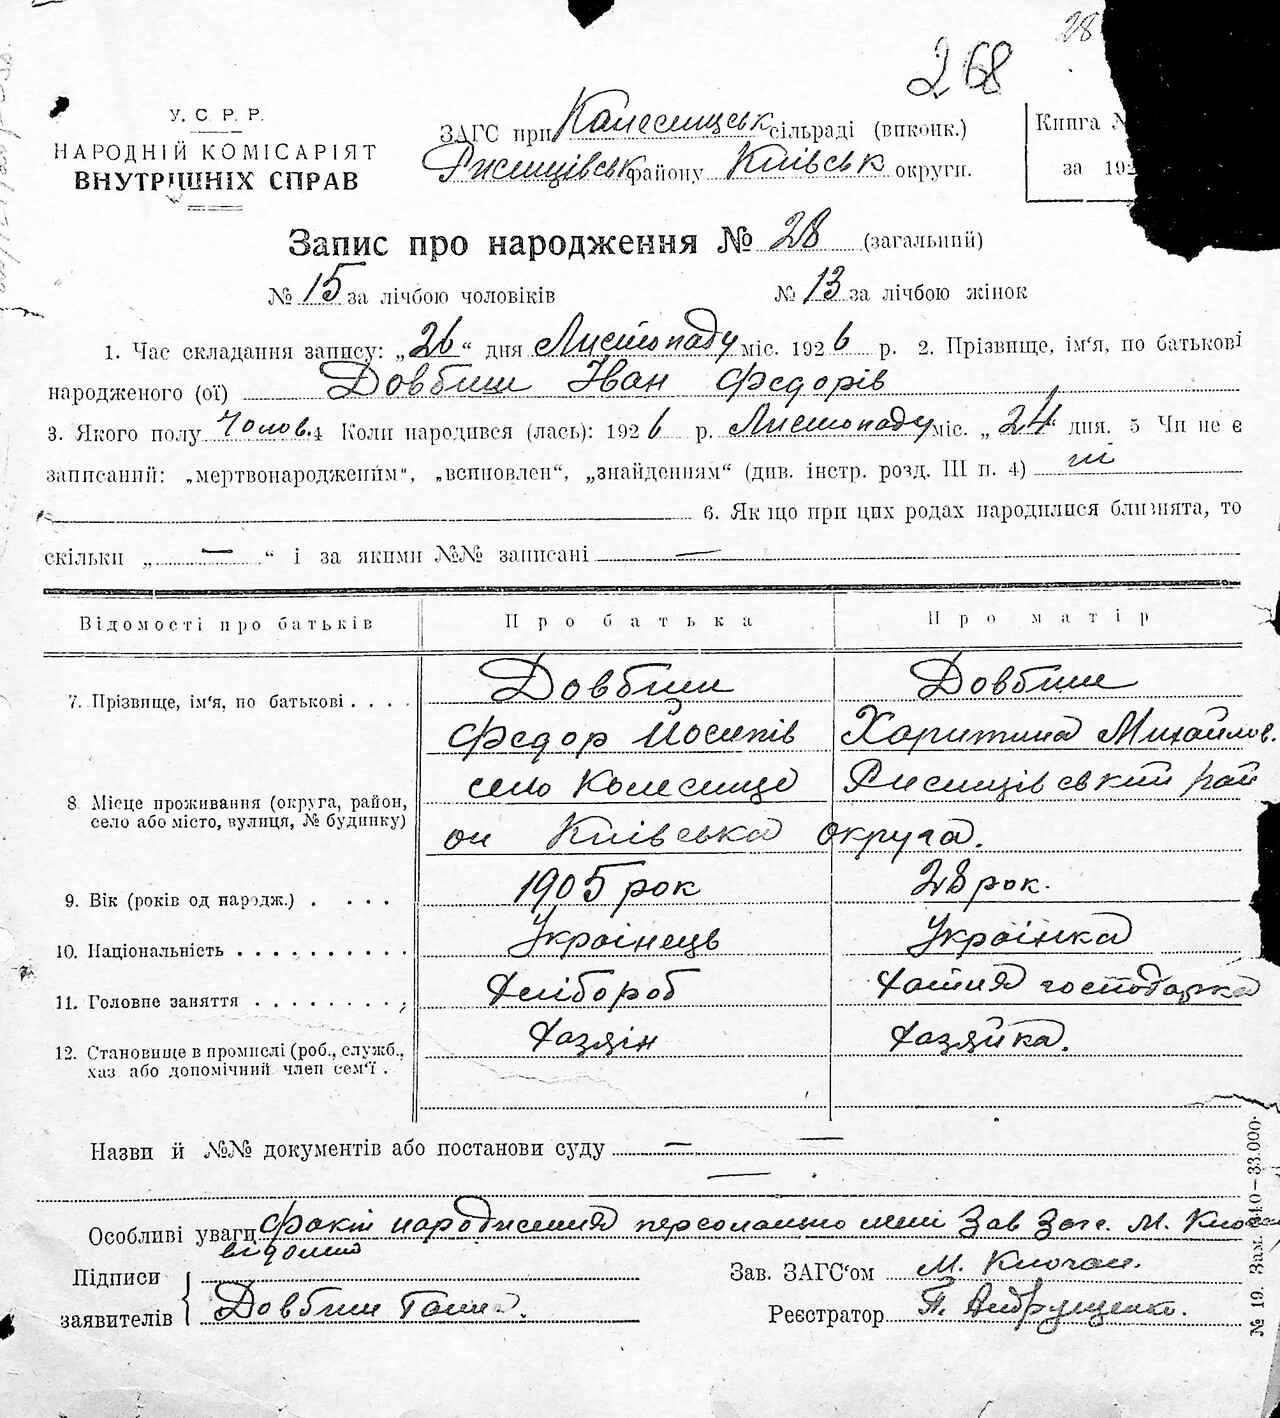 28
268
У. С. Р. Р.
НАРОДНІЙ КОМІСАРІЯТ
ВНУТРІШНІХ СПРАВ
ЗАГС при Колесищськ сільраді (виконк.)
Ржищівськ району Київськ округи.
Книга №
за 192
Запис про народження № 28 (загальний)
№ 15 за лічбою чоловіків № 13 за лічбою жінок
1. Час складання запису: „26“ дня Листопаду міс. 1926 р. 2. Прізвище, ім‘я, по батькові
народженого (ої) Довбиш Іван Федорів
3. Якого полу Чолов. 4 Коли народився (лась): 1926 р. Листопаду міс. „24“ дня. 5 Чи не є
записаний: „мертвонародженим“, „всиновлен“, „знайденням“ (див. інстр. розд. III п. 4) ні
6. Якщо при цих родах народилися близнята, то
скільки „ — “ і за якими №№ записані —
Відомості про батьків Про батька Про матір
7. Прізвище, ім‘я, по батькові . . . . Довбиш Довбиш
Федор Йосипів Харитина Михайлов.
8 Місце проживання (округа, район, село або місто, вулиця, № будинку) село Колесище Ржищівський рай
он Київська округа.
9. Вік (років од народж.) . . . . . 1905 рок 28 рок.
10. Національність . . . . . . . . . . Українець Українка
11. Головне заняття . . . . . . . . Хлібороб Хатня господарка
12. Становище в промислі (роб., служб., хаз або допомічний член сем‘ї . Хазяїн Хазяйка.
Назви й №№ документів або постанови суду — —
—
Особливі уваги Факт народження персонально мені Зав Загс. М. Клочан
відомий
Підписи
заявителів Довбиш Ганна.
Зав. ЗАГС‘ом М. Клочан.
Реєстратор П. Андрущенко.
№ 19. Зам. 40—33.000.